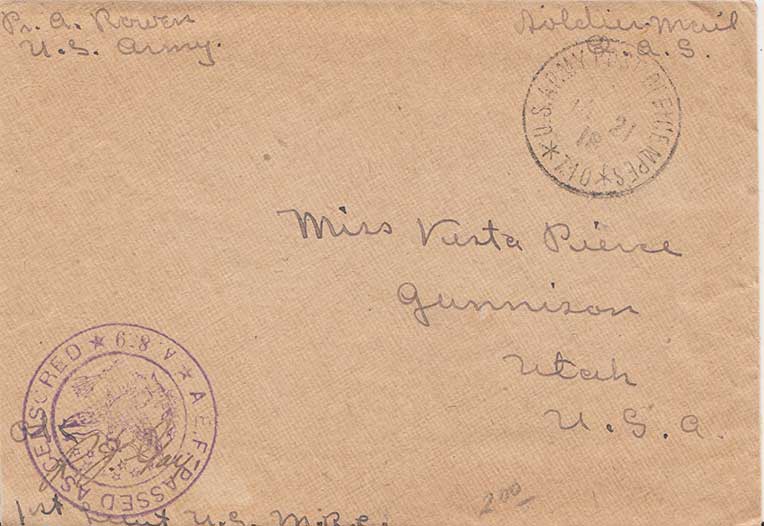 Pr. A. Rowen
U.S. Army.
Soldier Mail
O.A.S.
U.S. ARMY POST OFFICE MPES * 710 *
21
18
Miss Vesta Pierce
Gunnison
Utah
U.S.A.
A.E.F. PASSED AS CENSORED *
A. *
OK
1st Lieut U.S. M.R.C.
200